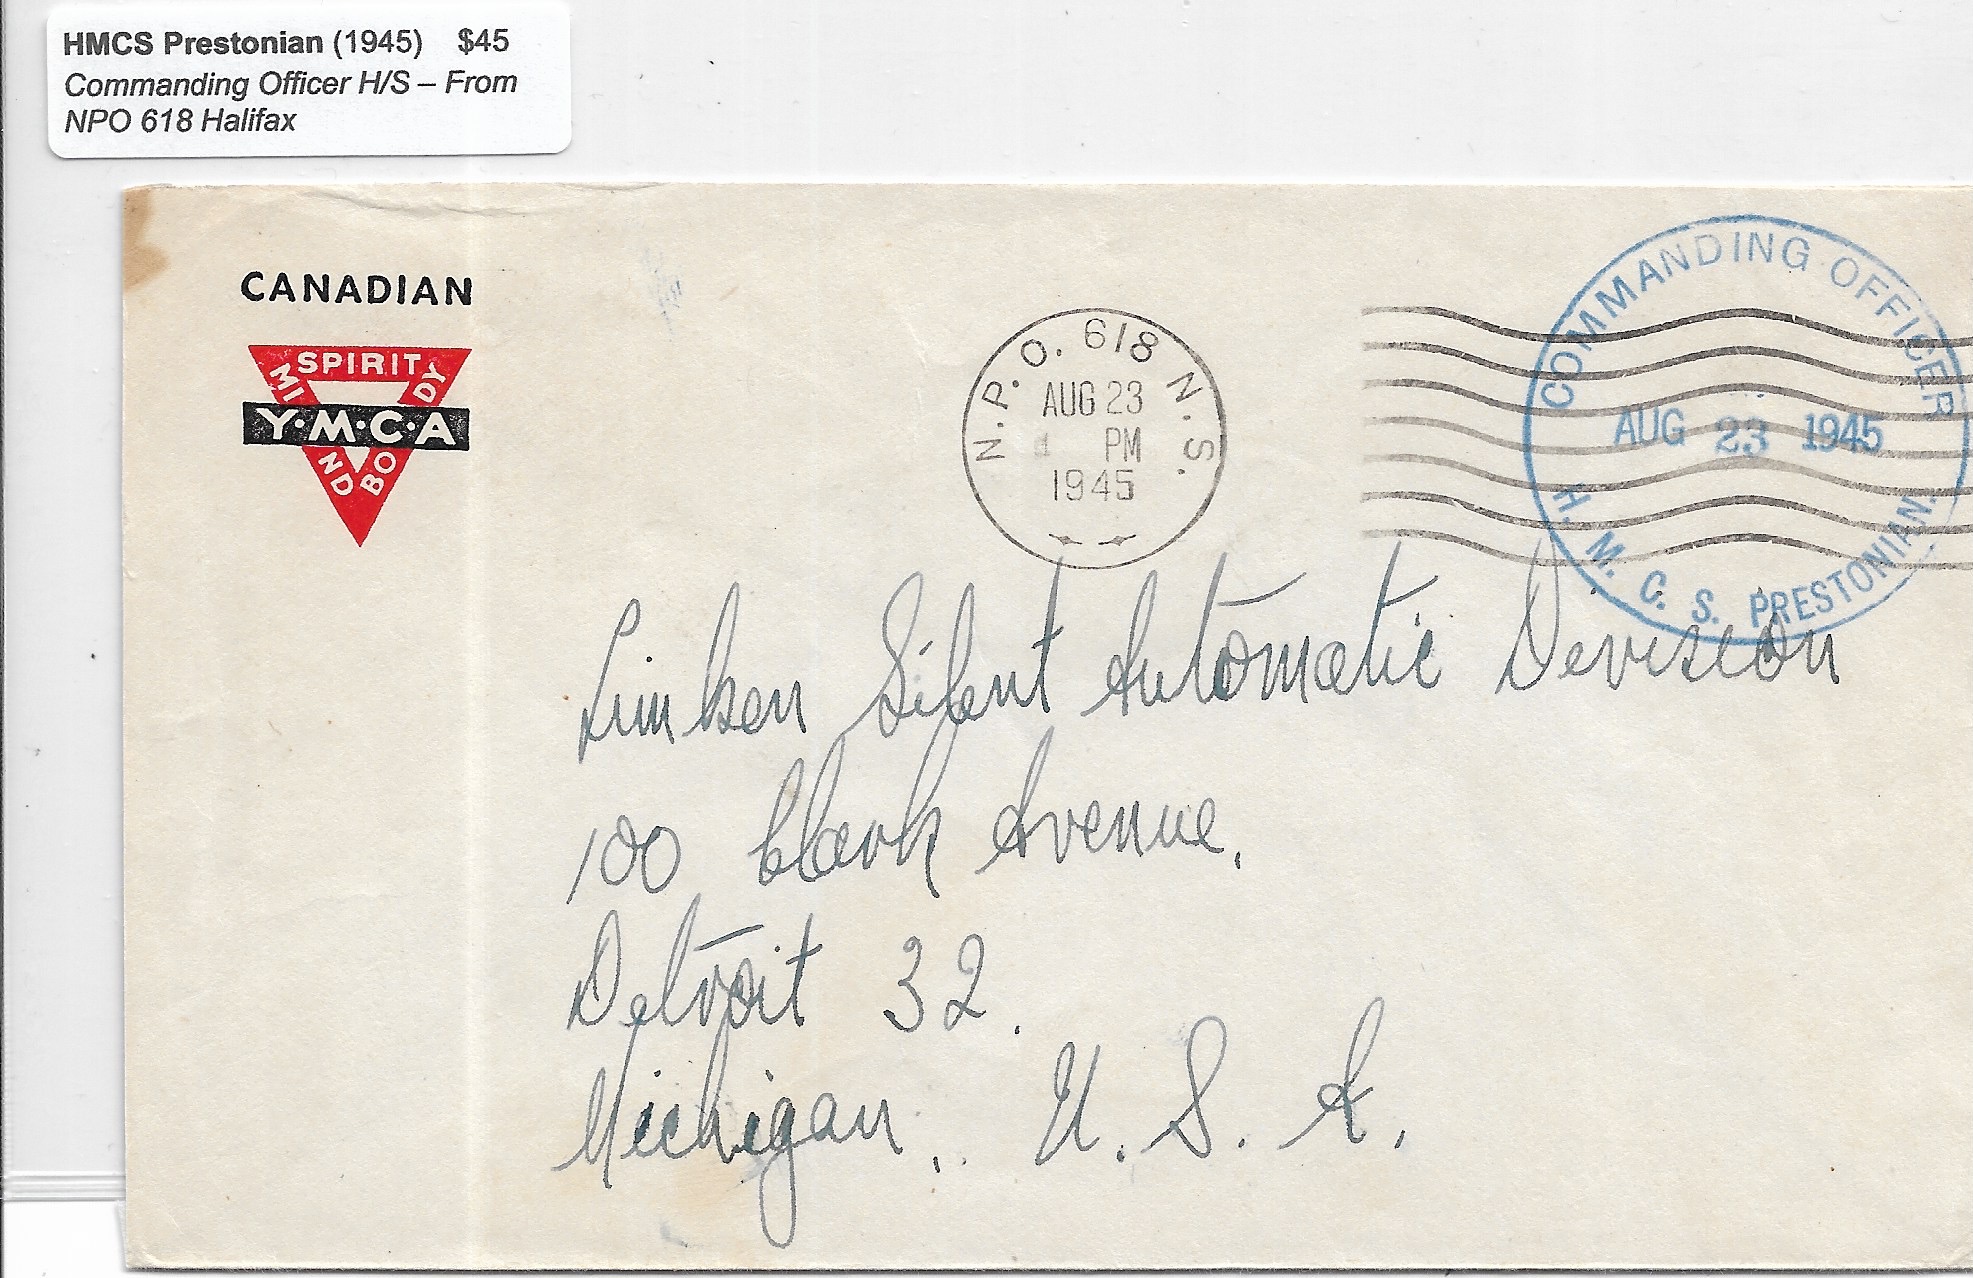 HMCS Prestonian (1945) $45
Commanding Officer H/S – From
NPO 618 Halifax
CANADIAN
SPIRIT
MIND
BODY
Y·M·C·A
N.P.O. 618 N.S.
AUG 23
PM
1945
COMMANDING OFFICER
AUG 23 1945
H. M. C. S. PRESTONIAN.
Timken Silent Automatic Devision
100 Clark Avenue,
Detroit 32.
Michigan, U. S. A.